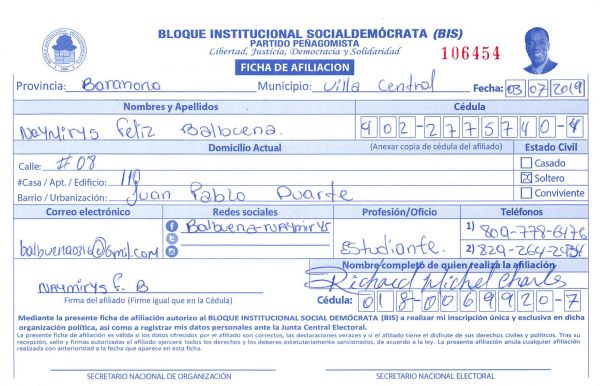 BLOQUE INSTITUCIONAL SOCIALDEMÓCRATA (BIS)
PARTIDO PEÑAGOMISTA
Libertad, Justicia, Democracia y Solidaridad
106454
FICHA DE AFILIACION
Provincia: Barahona Municipio: Villa Central Fecha: 03/07/2019
Nombres y Apellidos Cédula
Naymirys Feliz Balbuena. 402-2775740-4
Domicilio Actual (Anexar copia de cédula del afiliado) Estado Civil
Calle: #08 Casado
#Casa / Apt. / Edificio: 110 Soltero
Barrio / Urbanización: Juan Pablo Duarte Conviviente
Correo electrónico Redes sociales Profesión/Oficio Teléfonos
Balbuena-naymirys 1) 809-778-6176
balbuena0316@Gmil.com Estudiante. 2) 829-264-2934
Nombre completo de quien realiza la afiliación
Naymirys F. B Richard Michel Charles
Firma del afiliado (Firme igual que en la Cédula) Cédula: 018-0069920-7
Mediante la presente ficha de afiliación autorizo al BLOQUE INSTITUCIONAL SOCIAL DEMÓCRATA (BIS) a realizar mi inscripción única y exclusiva en dicha
organización política, así como a registrar mis datos personales ante la Junta Central Electoral.
La presente ficha de afiliación es válida si los datos ofrecidos por el afiliado son correctos, las declaraciones veraces y si el afiliado tiene el disfrute de sus derechos civiles y políticos. Tras su
recepción, sello y firmas autorizadas el afiliado ejercerá todos los derechos y los deberes estatutariamente sancionados, de acuerdo a la ley. La presente afiliación anula cualquier afiliación
realizada con anterioridad a la fecha que aparece en esta ficha.
SECRETARIO NACIONAL DE ORGANIZACIÓN SECRETARIO NACIONAL ELECTORAL